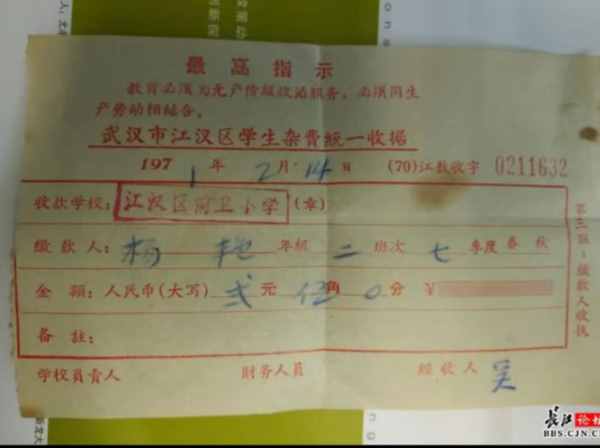 最高指示
教育必须为无产阶级政治服务，必须同生
产劳动相结合。
武汉市江汉区学生杂费统一收据
1971年2月14日 (70)江教收字 0211632
收款学校: 江汉区前卫小学 (章)
缴款人: 杨艳 年级 二 班次 七 季度 春 秋
金额: 人民币(大写) 弍元伍角0分 ¥
备註:
学校负责人 财务人员 经收人 吴
第二联:缴款人收执
长江论坛
BBS.CJN.CN